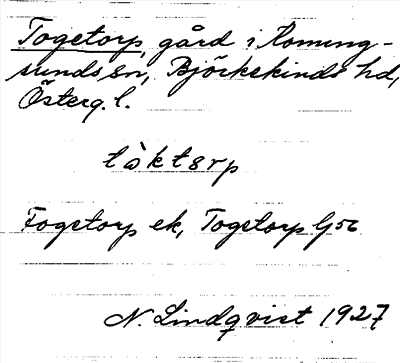 Togetorp, gård i Konung-
sunds sn, Björkekinds hd,
Österg. l.
tàktɘrp
Togetorp ek, Togetorp G56
N. Lindqvist 1927